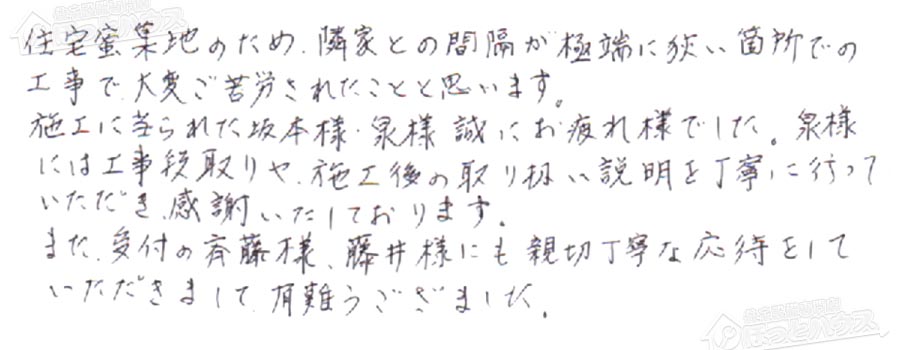 住宅蜜集地のため、隣家との間隔が極端に狭い箇所での
工事で、大変ご苦労されたことと思います。
施工に当られた坂本様・泉様誠にお疲れ様でした。泉様
には工事段取りや、施工後の取り扱い説明を丁寧に行って
いただき、感謝いたしております。
また、受付の斉藤様、藤井様にも親切丁寧な応待をして
いただきまして、有難うございました。
ほっとハウス
ほっとハウス